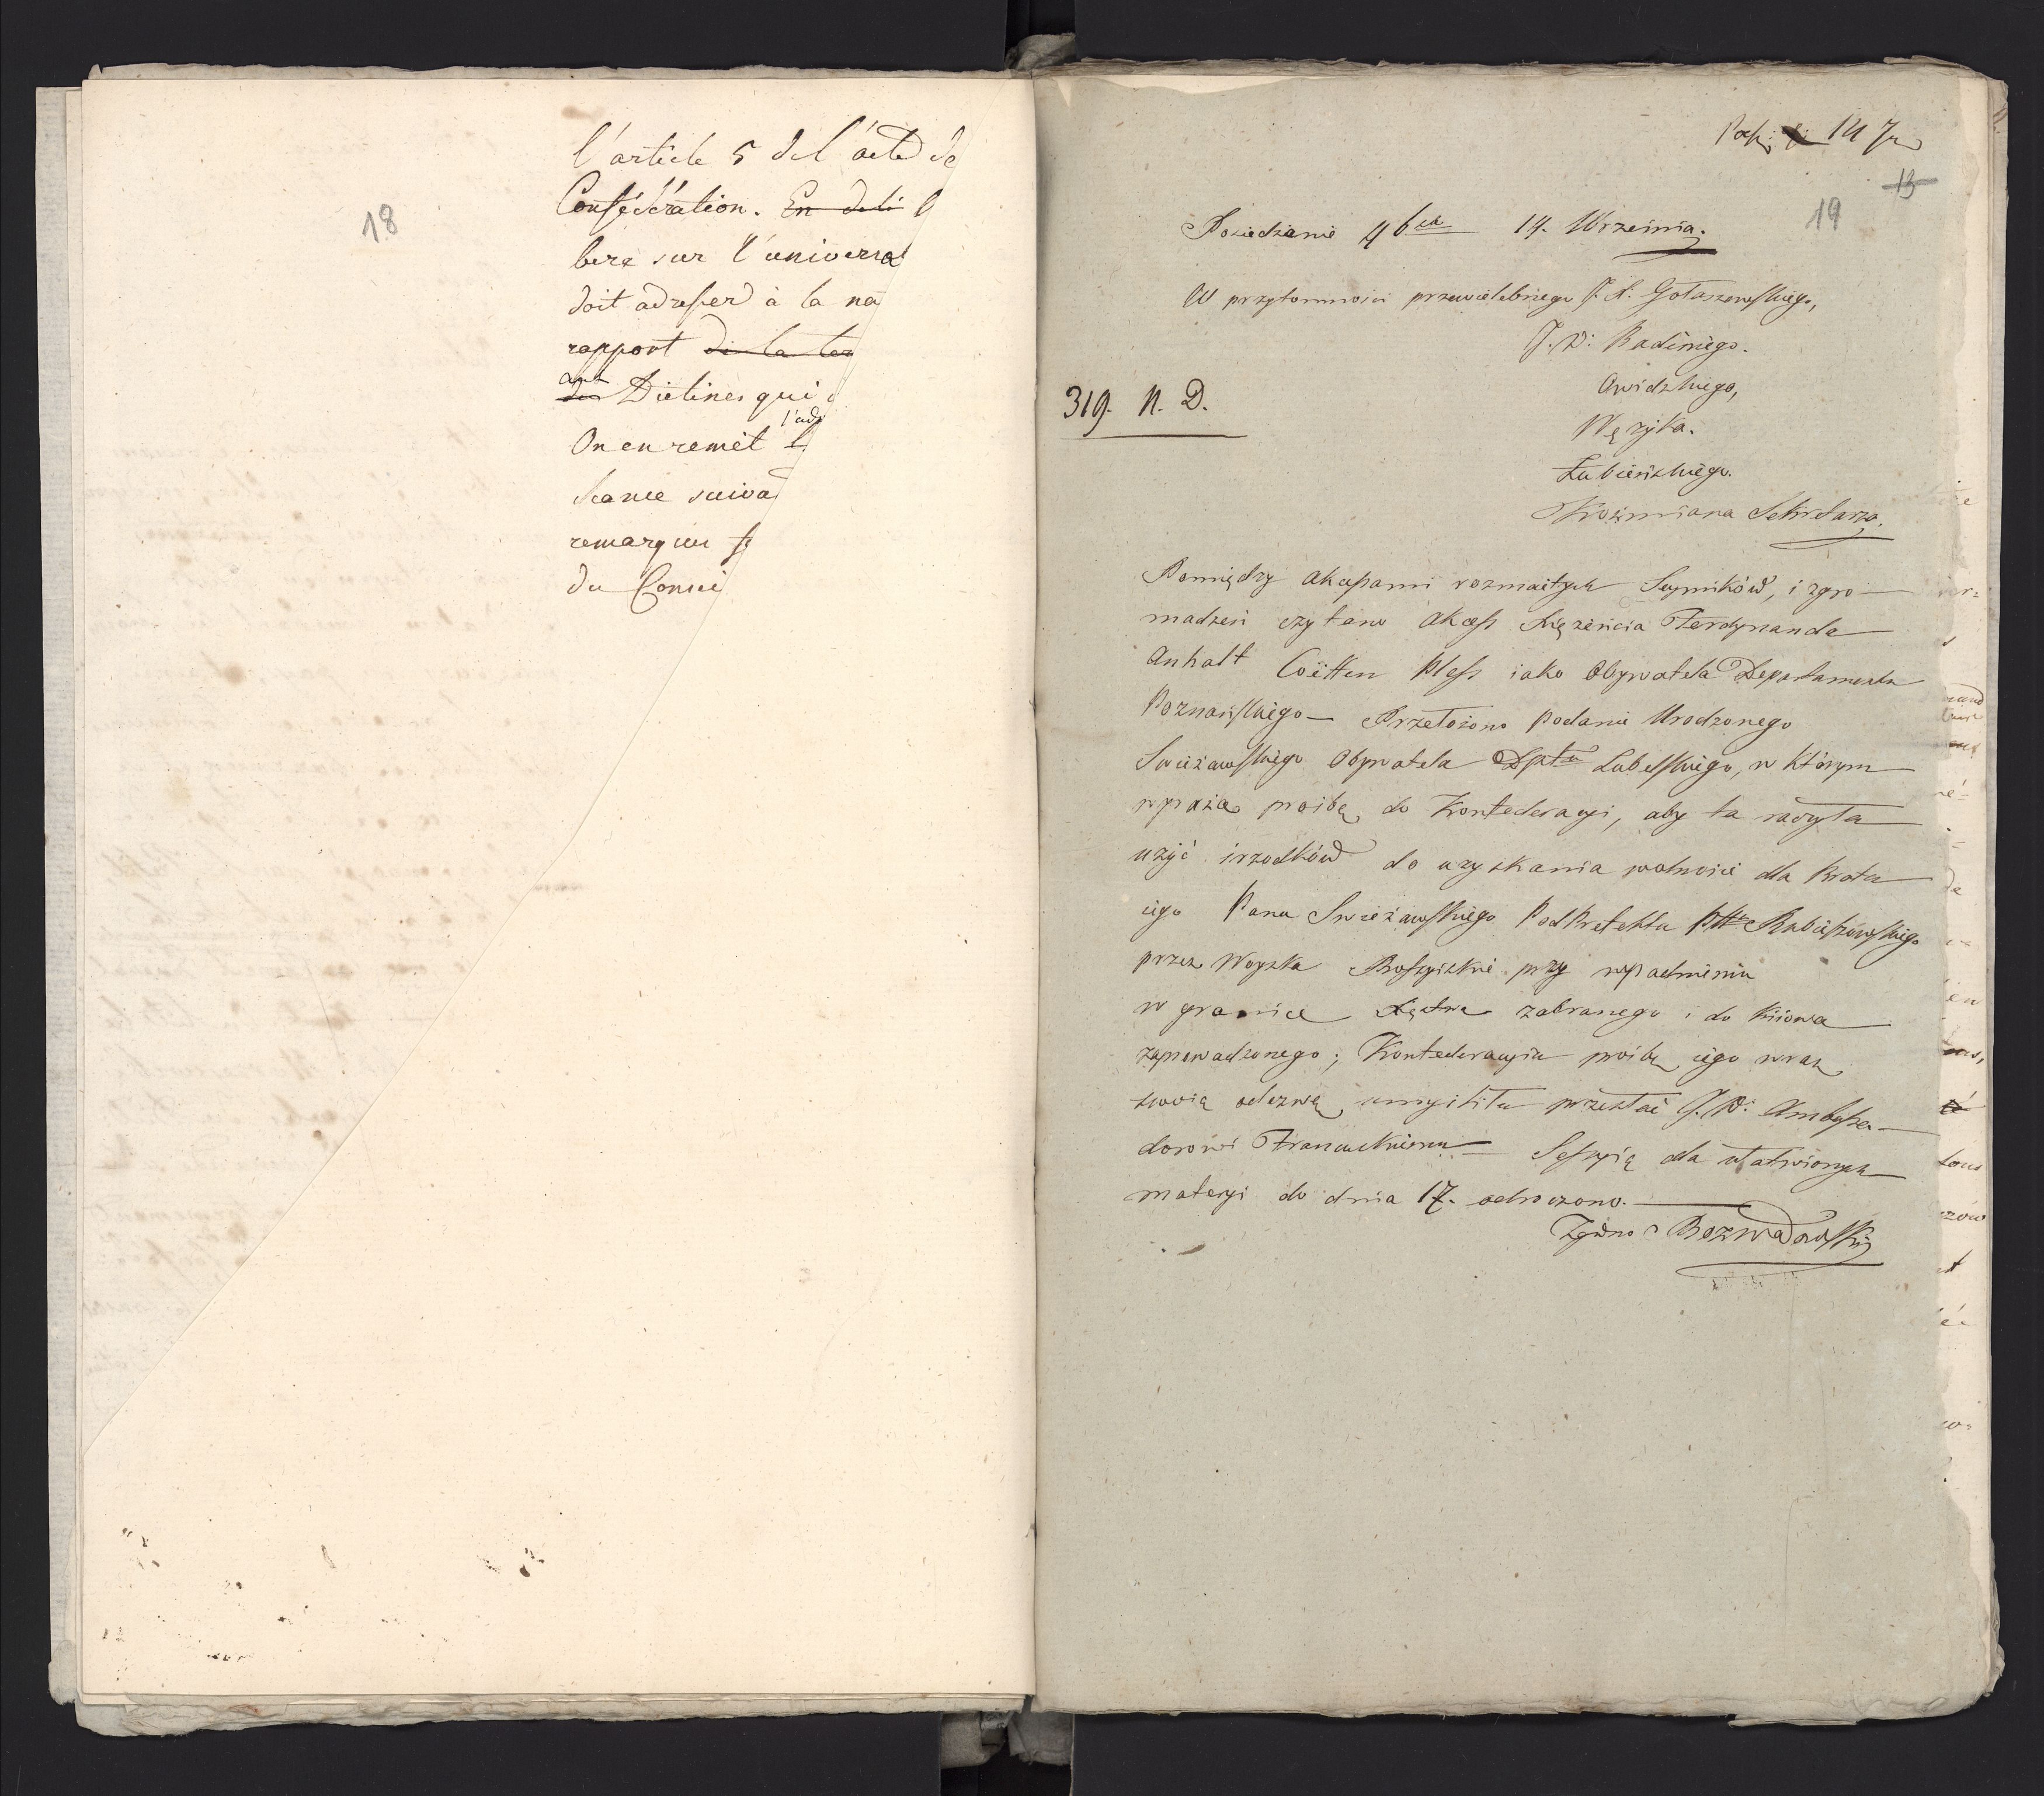 18
l'article 5 de l'acte de
Confédération. En deli
bere sur l'universal
doit adresser à la na
rapport de la
aux Dietines qui
On en remet l'ad
Seance suiva
remarques
du Conse
14 7br
13
19
Posiedzenie 4te 14. Wrzesnia.
W przytomności przewielebnego J. X. Gołaszewskiego,
J. W. Badeniego.
Gwidzkiego,
Wężyka.
Łubieńskiego.
Koźmiana Sekretarza.
319. N. D.
Pomiędzy akcessami rozmaitych Seymików, i zgro-
madzeń czytano akcess Xiężęcia Ferdynanda
Anhalt Coëtten Pless iako Obywatela Departamentu
Poznańskiego — Przełożono podanie Urodzonego
Swieżawskiego Obywatela Dptu Lubelskiego, w którym
wyraża prośbę do Konfederacyi, aby ta raczyła
użyć srzodków do uzyskania wolności dla Brata
iego Pana Swieżawskiego PodPrefekta Pttu Hrubieszowskiego
przez Woyska Rossyiskie przy wpadnieniu
w granice Xięstwa zabranego i do Kiiowa
zaprowadzonego; Konfederacyia prośbę iego wraz
swoią odezwą umyśliła przesłać J. W. Ambassa-
dorowi Francuskiemu — Sessyią dla ułatwionych
materyi do dnia 17. odroczono. —
Zgodno Rozwadowski